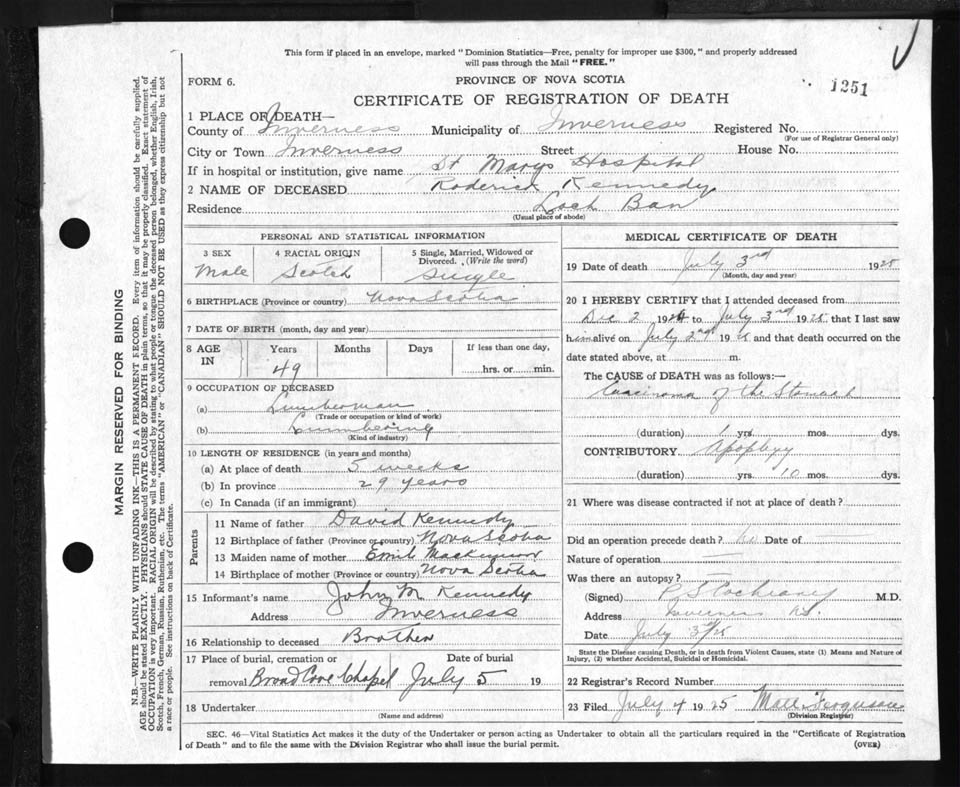 This form if placed in an envelope, marked "Dominion Statistics—Free, penalty for improper use $300," and properly addressed
will pass through the Mail "FREE."
FORM 6.
PROVINCE OF NOVA SCOTIA
1251
CERTIFICATE OF REGISTRATION OF DEATH
1 PLACE OF DEATH—
County of Inverness Municipality of Inverness Registered No.
(For use of Registrar General only)
City or Town Inverness Street House No.
If in hospital or institution, give name St Marys Hospital
2 NAME OF DECEASED Roderick Kennedy
Residence Loch Ban
(Usual place of abode)
PERSONAL AND STATISTICAL INFORMATION
3 SEX 4 RACIAL ORIGIN 5 Single, Married, Widowed or
Divorced. (Write the word)
Male Scotch Single
6 BIRTHPLACE (Province or country) Nova Scotia
7 DATE OF BIRTH (month, day and year)
8 AGE IN Years Months Days If less than one day,
49 hrs. or min.
9 OCCUPATION OF DECEASED
(a) Lumberman
(Trade or occupation or kind of work)
(b) Lumbering
(Kind of industry)
10 LENGTH OF RESIDENCE (in years and months)
(a) At place of death 5 weeks
(b) In province 29 years
(c) In Canada (if an immigrant)
Parents
11 Name of father David Kennedy
12 Birthplace of father (Province or country) Nova Scotia
13 Maiden name of mother
14 Birthplace of mother (Province or country) Nova Scotia
15 Informant's name John M Kennedy
Address Inverness
16 Relationship to deceased Brother
17 Place of burial, cremation or Date of burial
removal Broad Cove Chapel July 5 19
18 Undertaker
(Name and address)
MEDICAL CERTIFICATE OF DEATH
19 Date of death July 3rd 1925
(Month, day and year)
20 I HEREBY CERTIFY that I attended deceased from
Dec 2 1924 to July 3rd 1925 that I last saw
him alive on July 2nd 1925 and that death occurred on the
date stated above, at m.
The CAUSE of DEATH was as follows:—
Carcinoma of the Stomach
(duration) 1 yrs. mos. dys.
CONTRIBUTORY Apoplexy
(duration) yrs. 10 mos. dys.
21 Where was disease contracted if not at place of death?
Did an operation precede death? No Date of —
Nature of operation —
Was there an autopsy?
(Signed) M.D.
Address Inverness NS
Date July 3rd/25
State the Disease causing Death, or in death from Violent Causes, state (1) Means and Nature of
Injury, (2) whether Accidental, Suicidal or Homicidal.
22 Registrar's Record Number
23 Filed July 4 1925 Matt. Ferguson
(Division Registrar)
SEC. 46—Vital Statistics Act makes it the duty of the Undertaker or person acting as Undertaker to obtain all the particulars required in the "Certificate of Registration
of Death" and to file the same with the Division Registrar who shall issue the burial permit.
(OVER)
MARGIN RESERVED FOR BINDING
N.B.—WRITE PLAINLY WITH UNFADING INK—THIS IS A PERMANENT RECORD. Every item of information should be carefully supplied.
AGE should be stated EXACTLY. PHYSICIANS should STATE CAUSE OF DEATH in plain terms, so that it may be properly classified. Exact statement of
OCCUPATION is very important. RACIAL ORIGIN will be described by stating to what people or tongue the deceased person belonged, whether English, Irish,
Scotch, French, German, Russian, Ruthenian, etc. The terms "AMERICAN" or "CANADIAN" SHOULD NOT BE USED as they express citizenship but not
a race or people. See instructions on back of Certificate.